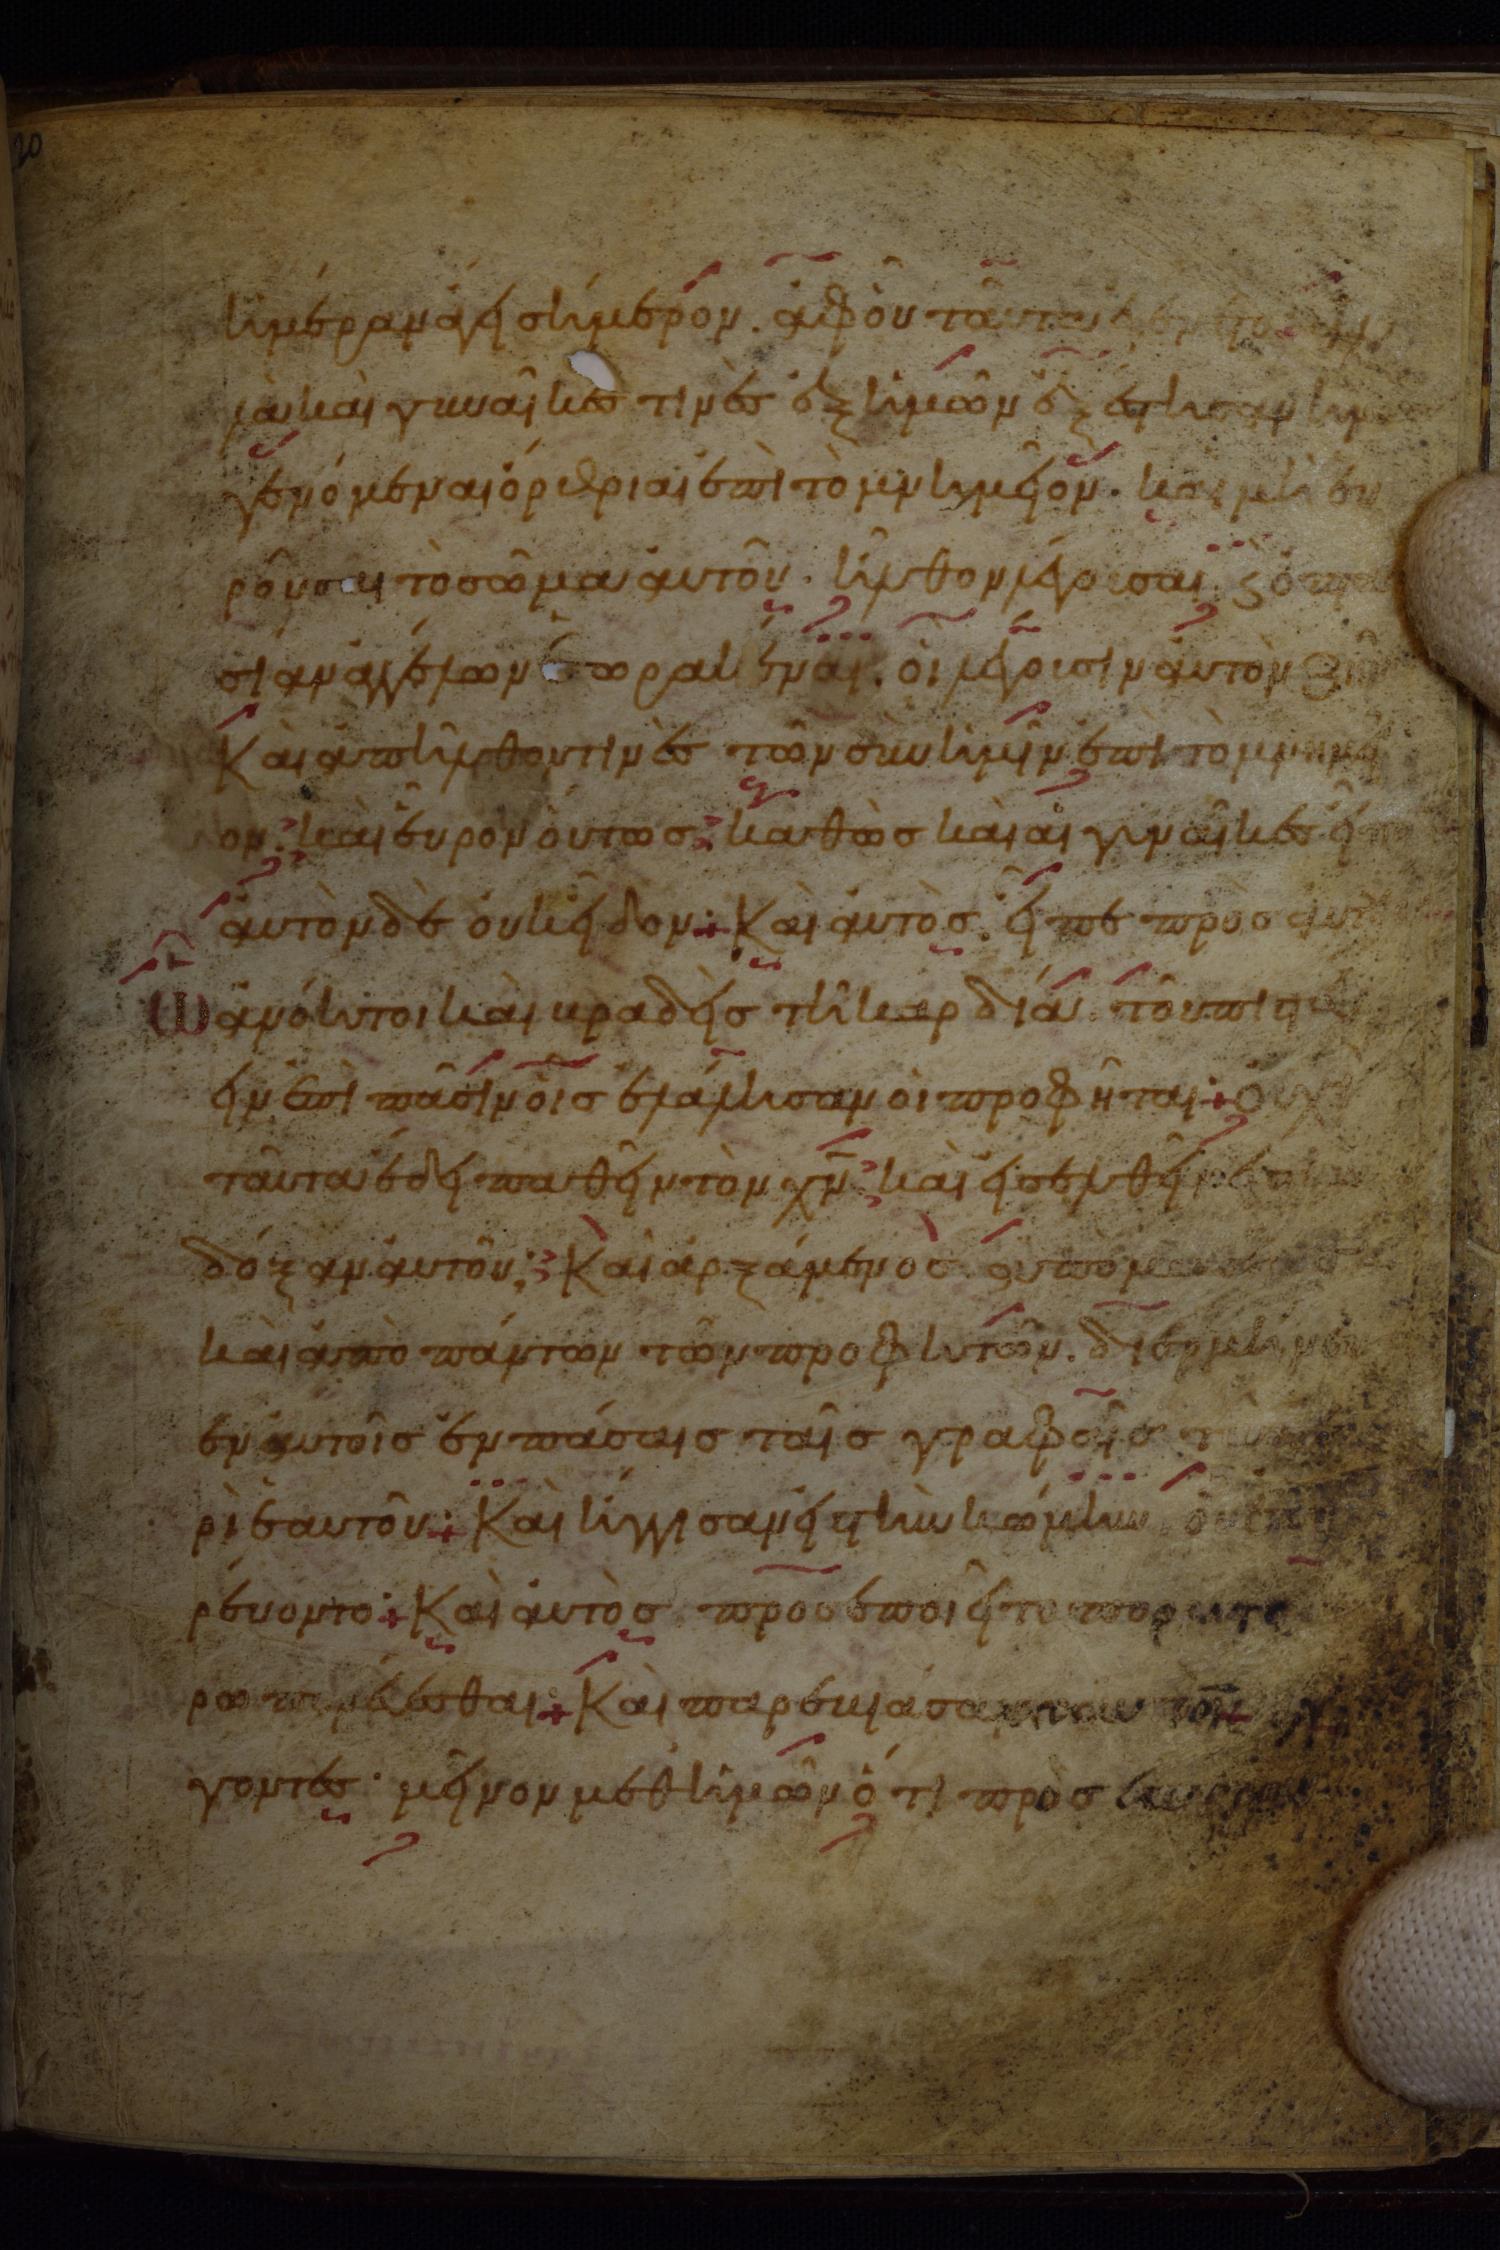 20
ἡμέραν ἄγει σήμερον. ἀφ' οὗ ταῦτα
μα καὶ γυναῖκες τινὲς ἐξ ἡμῶν ἐξέστησαν ἡμ
γενόμεναι ὄρθριαι ἐπὶ τὸ μνημεῖον. καὶ μὴ εὑ
ροῦσαι τὸ σῶμα αὐτοῦ. ἦλθον λέγουσαι ὀπτα
σίαν ἀγγέλων ἑωρακέναι. οἳ λέγουσιν αὐτὸν ζῆν
Καὶ ἀπῆλθον τινὲς τῶν σὺν ἡμῖν ἐπὶ τὸ μνημεῖ
ον. καὶ εὗρον οὕτως καθὼς καὶ αἱ γυναῖκες εἶ
αὐτὸν δὲ οὐκ εἶδον Καὶ αὐτὸς. εἶπε πρὸς αὐτ
Ὦ ἀνόητοι καὶ βραδεῖς τῆ καρδία τοῦ πιστ
ειν ἐπὶ πᾶσιν οἷς ἐλάλησαν οἱ προφῆται οὐχὶ
ταῦτα ἔδει παθεῖν τὸν χν̅ καὶ εἰσελθεῖν
δόξαν αὐτοῦ; Καὶ ἀρξάμενος ἀπὸ
καὶ ἀπὸ πάντων τῶν προφητῶν. διερμήνευ
εν αὐτοῖς ἐν πάσαις ταῖς γραφαῖς τὰ
ρὶ ἑαυτοῦ Καὶ ἤγγισαν εἰς τὴν κώμην οὗ ἐπο
ρεύοντο Καὶ αὐτὸς προσεποιεῖτο πορρωτέ
ρω πορεύεσθαι Καὶ παρεβιάσαντο αὐτὸν λέ
γοντες· μεῖνον μεθ' ἡμῶν ὅτι πρὸς ἑσπέραν